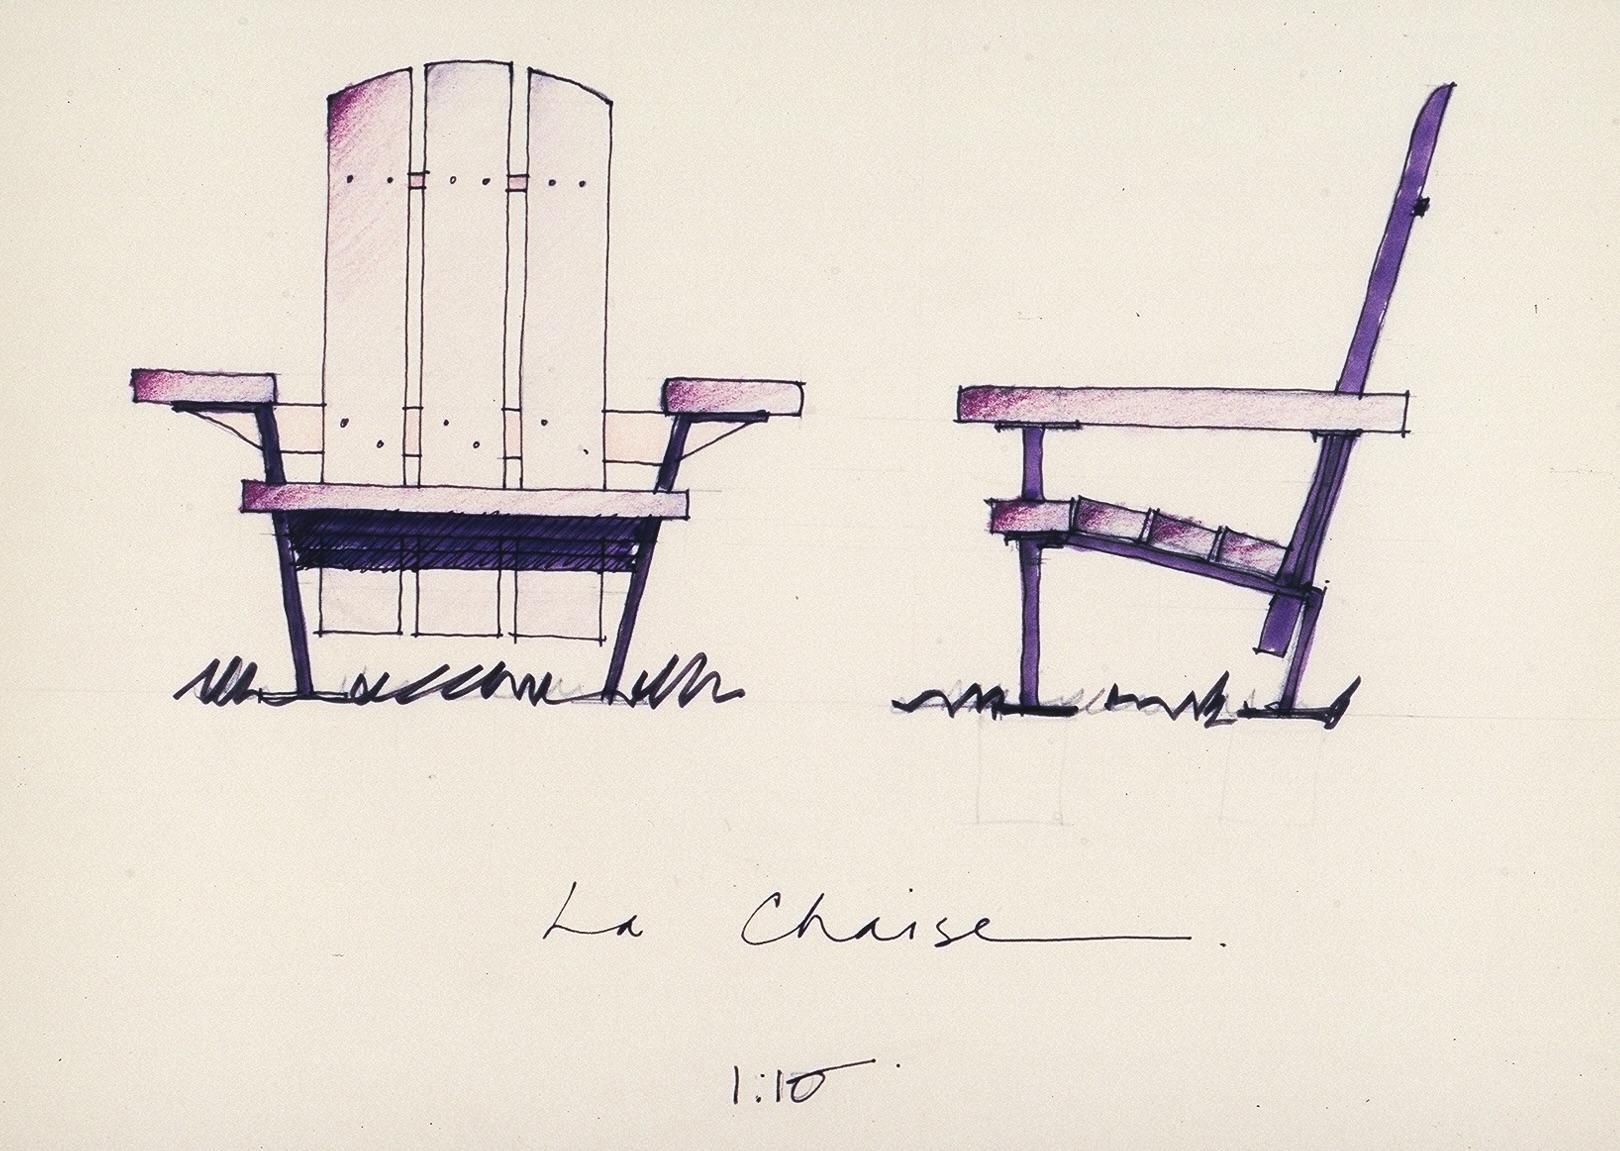 La Chaise.
1:10